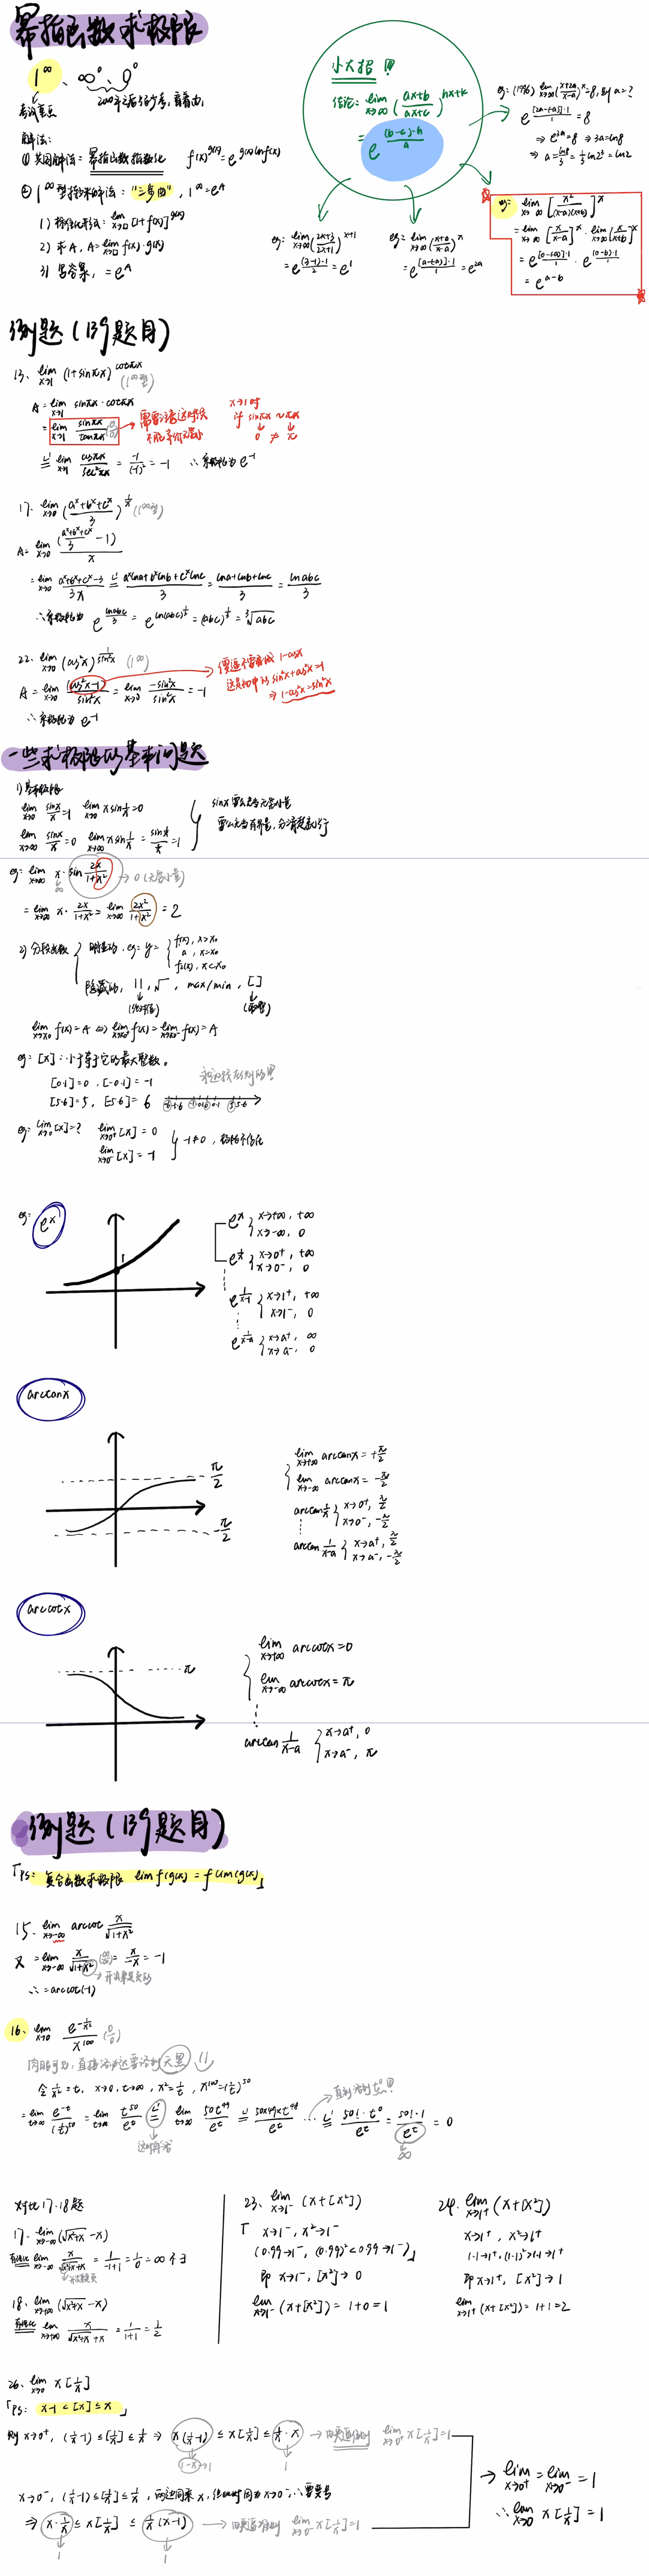 幂指函数求极限
1^∞、∞^0、0^0
考试重点
解法:
① 共同解法: 幂指函数指数化 f(x)^{g(x)} = e^{g(x)lnf(x)}
② 1^∞型特殊解法: "三步曲", 1^∞ = e^A
1) 标准化来法: lim_{x→□} [1+f(x)]^{g(x)}
2) 求A, A = lim_{x→□} f(x)·g(x)
3) 写答案, = e^A
小大招 !!!
结论: lim_{x→∞} (ax+b/ax+c)^{hx+k}
= e^{(b-c)·h/a}
eg: lim_{x→∞} (2x+3/2x+1)^{x+1}
= e^{(3-1)·1/2} = e^1
eg: lim_{x→∞} (x+a/x-a)^x
= e^{[a-(-a)]·1/1} = e^{2a}
eg: (1996) lim_{x→∞} (x+2a/x-a)^x = 8, 则a=?
e^{[2a-(-a)]·1/1} = 8
⇒ e^{3a} = 8 ⇒ 3a = ln8
⇒ a = ln8/3 = 1/3 ln2^3 = ln2
eg: lim_{x→∞} [x²/(x-a)(x+b)]^x
= lim_{x→∞} [x/x-a]^x · lim_{x→∞} [x/x+b]^x
= e^{[0-(-a)]·1/1} · e^{(0-b)·1/1}
= e^{a-b}
例题 (139题目)
13、lim_{x→1} (1+sinπx)^{cotπx} (1^∞型)
A = lim_{x→1} sinπx·cotπx
= lim_{x→1} sinπx/tanπx (0/0)
x→1时
if sinπx ~ πx
0 ≠ π
= lim_{x→1} cosπx/sec²πx = -1/(-1)² = -1 ∴ 原极限为 e^{-1}
17. lim_{x→0} (a^x+b^x+c^x/3)^{1/x} (1^∞型)
A = lim_{x→0} (a^x+b^x+c^x/3 - 1)/x
= lim_{x→0} a^x+b^x+c^x-3/3x = a^xlna+b^xlnb+c^xlnc/3 = lna+lnb+lnc/3 = lnabc/3
∴ 原极限为 e^{lnabc/3} = e^{ln(abc)^{1/3}} = (abc)^{1/3} = ∛abc
22. lim_{x→0} (cos²x)^{1/sin²x} (1^∞)
A = lim_{x→0} (cos²x-1)/sin²x = lim_{x→0} -sin²x/sin²x = -1
∴ 原极限为 e^{-1}
sin²x+cos²x=1
⇒ 1-cos²x = sin²x
一些求极限的基本问题
1) 基本极限
lim_{x→0} sinx/x = 1 lim_{x→0} x sin1/x = 0
lim_{x→∞} sinx/x = 0 lim_{x→∞} x sin1/x = sin1/x / 1/x = 1
sinx 要么是当无穷小量
要么是当有界量, 分清楚就行
eg: lim_{x→∞} x·sin 2x/1+x² → 0 (无穷小量)
= lim_{x→∞} x·2x/1+x² = lim_{x→∞} 2x²/1+x² = 2
2) 分段函数
明显的, eg: y = { f₁(x), x>x₀
a, x=x₀
f₂(x), x<x₀
隐藏的, | |, √, max/min, [ ]
(绝对值) (取整)
lim_{x→x₀} f(x) = A ⇔ lim_{x→x₀⁺} f(x) = lim_{x→x₀⁻} f(x) = A
eg: [x]: 小于等于它的最大整数。
[0.1]=0, [-0.1]=-1
[5.6]=5, [-5.6]= 6
eg: lim_{x→0} [x]=? lim_{x→0⁺} [x] = 0
lim_{x→0⁻} [x] = -1
-1≠0, 极限不存在
eg: e^x
1
e^x { x→+∞, +∞
x→-∞, 0
e^{1/x} { x→0⁺, +∞
x→0⁻, 0
e^{1/x-1} { x→1⁺, +∞
x→1⁻, 0
e^{1/x-a} { x→a⁺, ∞
x→a⁻, 0
arctanx
π/2
-π/2
lim_{x→+∞} arctanx = +π/2
lim_{x→-∞} arctanx = -π/2
arctan1/x { x→0⁺, π/2
x→0⁻, -π/2
arctan 1/x-a { x→a⁺, π/2
x→a⁻, -π/2
arccotx
π
lim_{x→+∞} arccotx = 0
lim_{x→-∞} arccotx = π
arctan 1/x-a { x→a⁺, 0
x→a⁻, π
例题 (139题目)
「PS: 复合函数求极限 lim f(g(x)) = f(lim g(x))」
15. lim_{x→-∞} arccot x/√1+x²
又 = lim_{x→-∞} x/√1+x² (∞/∞) = x/-x = -1
∴ = arccot(-1)
16、lim_{x→0} e^{-1/x²}/x^{100} (0/0)
令 1/x² = t, x→0, t→∞, x² = 1/t, x^{100} = (1/t)^{50}
= lim_{t→∞} e^{-t}/(1/t)^{50} = lim_{t→∞} t^{50}/e^t = lim_{t→∞} 50t^{49}/e^t = 50×49×t^{48}/e^t … = 50!·t⁰/e^t = 50!·1/e^t = 0
直到洛到t⁰!!!
对比17、18题
17. lim_{x→-∞} (√x²+x - x)
有理化 lim_{x→-∞} x/√x²+x+x = 1/-1+1 = 1/0 = ∞ 不∃
18. lim_{x→+∞} (√x²+x - x)
有理化 lim_{x→+∞} x/√x²+x+x = 1/1+1 = 1/2
23. lim_{x→1⁻} (x+[x²])
「 x→1⁻, x²→1⁻
(0.99→1⁻, (0.99)²<0.99→1⁻)」
即 x→1⁻, [x²]→0
lim_{x→1⁻} (x+[x²]) = 1+0 = 1
24. lim_{x→1⁺} (x+[x²])
x→1⁺, x²→1⁺
1.1→1⁺, (1.1)²>1.1→1⁺
即 x→1⁺, [x²]→1
lim_{x→1⁺} (x+[x²]) = 1+1 = 2
26. lim_{x→0} x[1/x]
「PS: x-1<[x]≤x」
则 x→0⁺, (1/x-1)≤[1/x]≤1/x ⇒ x(1/x-1)≤x[1/x]≤1/x·x → 由夹逼准则 lim_{x→0⁺} x[1/x]=1
1-x→1 1
x→0⁻, (1/x-1)≤[1/x]≤1/x, 两边同乘x, 但此时因为x→0⁻ ∴ 要变号
⇒ x·1/x≤x[1/x]≤1/x(x-1) → 由夹逼准则 lim_{x→0⁻} x[1/x]=1
1 1
→ lim_{x→0⁺} = lim_{x→0⁻} = 1
∴ lim_{x→0} x[1/x] = 1